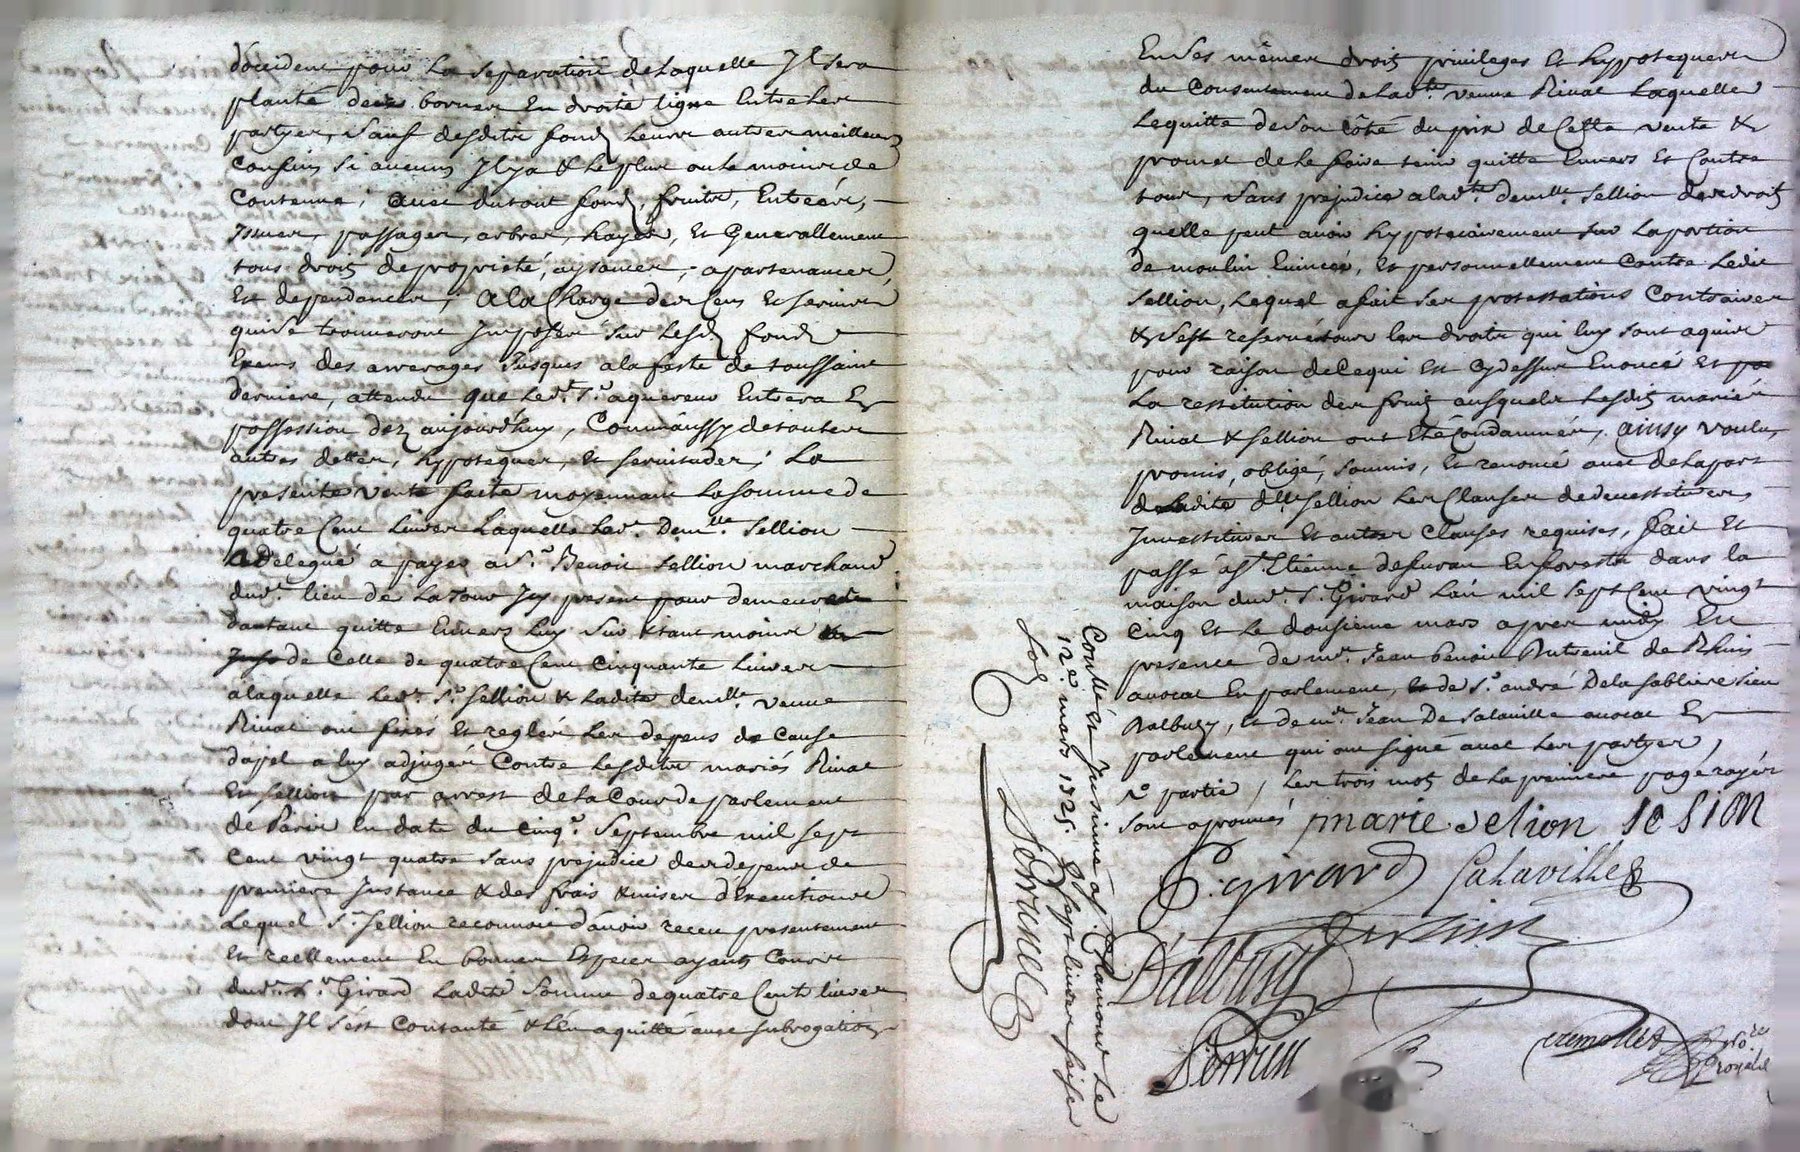 d'occident pour la separation de laquelle Il sera
planté des bornes en droite ligne entre les
partyes, sauf desdits fonds leurs autres meilleurs
confins si aucuns Il y a & le plus ou le moins de
contenue; avec dutout fonds, fruits, Entrées,
Issues, passages, arbres, hayes, et Generallement
tous droits de proprieté, aysances, apartenances,
Et dependances; a la Charge des Cens et servis
qui se trouveront Imposés sur lesds. fonds
Exems des arrerages Jusques a la feste de toussaint
derniere, attendu que led. Sr. aquereur Entrera En
possession dez aujourd'huy, Comm'aussy de toutes
autres dettes, hypoteques, et servitudes; La
presente vente faite moyennant la somme de
quatre Cent Livres laquelle lad. Demlle. Sellion
a delegué a payer a Sr. Benoit Sellion marchand
dud. lieu de La Tour Icy present pour demeurer
dautant quitte Envers luy sur & tant moins
de Celle de quatre Cent Cinquante Livres
a laquelle led. Sr. Sellion & ladite demlle. veuve
Rivat ont fixés Et reglés les depens de Cause
dapel a luy adjugés Contre lesdits mariés Rivat
Et Sellion par arrest de la Cour de parlement
de Paris En date du cinqe. Septembre mil sept
Cent vingt quatre sans prejudice des depens de
premiere Instance & des frais & mises d'Executions
Lequel Sr. Sellion reconnoit d'avoir receu presentement
Et reellement En bonnes Especes ayants Cours
dud. Sr. Girard Ladite Somme de quatre Cents livres
dont Il s'est Contanté & l'En a quitté avec subrogation
En ses mêmes droits privileges Et hypoteques
du Consentement de ladte. veuve Rivat Laquelle
Le quitte de son côté du prix de Cette vente &
promet de le faire tenir quitte Envers Et Contre
tous, sans prejudice a ladte. demlle. Sellion des droits
quelle peut avoir hypotecairement sur la portion
de moulin Evincée, Et personnellement Contre Ledit
Sellion, Lequel a fait ses protestations Contraires
& s'est reservé tous les droits qui luy sont aquis
pour raison de Ce qui Est Cy dessus Enoncé Et
La restitution des fruits ausquels Lesdits mariés
Rivat & Sellion ont Eté Condamnés, ainsy voulu,
promis, obligé, soumis, Et renoncé avec de la part
de Ladite dlle Sellion Les Clauses de devestitures,
Investitures Et autres Clauses requises, fait Et
passé a St. Etienne de furan En forests dans la
maison dud. Sr. Girard L'an mil Sept Cent vingt
Cinq Et Le dousieme mars apres midy En
presence de mr. Jean Benoit Dutreuil de Rhins
avocat En parlement, de Sr. andré Dela sabliere sieur
Dalbuzy, Et de mr. Jean De Salaville avocat En
parlement qui ont signé avec Les partyes,
Les trois mots de la premiere page rayés
sont aprouvés marie Selion Selion
Girard Salaville
Dalbusy
Perrin
Conllé et Insinué a St. Chamond Le
12e. mars 1725.